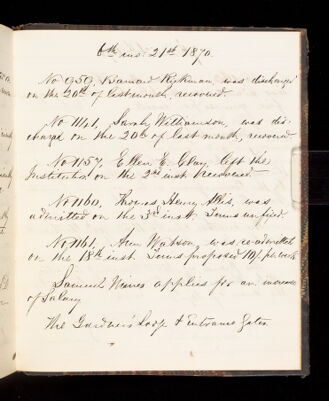 6th mo. 21st 1870.
No 959, Barnard Rickman, was discharged
on the 20th of last month, recovered
No 1141, Sarah Williamson, was dis-
charged on the 20th of last month, recovered
No 1157, Ellen E. Clay, left the
Institution on the 2nd inst recovered
No 1160, Thomas Henry was
admitted on the 3rd inst. Terms as fixed
No 1161, Ann Watson, was re-admitted
on the 18th inst. Terms proposed 10/ per week
Samuel applies for an increase
of Salary
The Gardener's Lodge & Entrance Gates